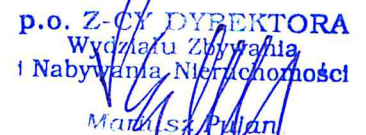 p.o. Z-CY DYREKTORA
Wydziału Zbywania
i Nabywania Nieruchomości
Mariusz Pujan